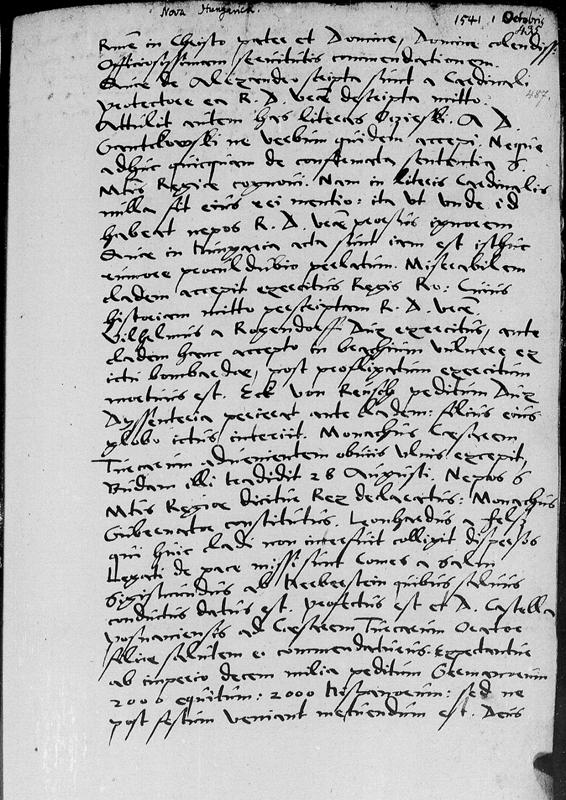 Nova Hungarick.
1541 1 Octobris
487.
Rme in Christo pater et Domine, Domine colendiss:
Officiosissimam servitutis commendationem.
Quae de Alexandro scripta sunt a Cardinali
protectore ea R. D. Vrae descripta mitto.
Attulit autem has literas A D.
ne verbum quidem accepi. Neque
adhuc quicquam de confirmata sententia S.
Mtis Regiae cognovi. Nam in literis Cardinalis
nulla fit eius rei mentio: ita ut unde id
habeat nepos R. D. Vrae prorsus ignorem
Quae in Hungaria acta sunt iam est isthuc
rumore procul dubio perlatum. Miserabilem
cladem accepit exercitus Regis Ro: Cuius
historiam mitto perscriptam R. D. Vrae.
Vilhelmus a Rogendorff Dux exercitus, ante
cladem hanc accepto in brachium vulnere ex
ictu bombardae, post profligatum exercitum
mortuus est. Eck von Reusch peditum Dux
Dyssenteria perierat ante cladem: filius eius
globo ictus interiit. Monachus Caesarem
Turcarum advenientem obviis ulnis excepit,
Budam illi tradidit 26 Augusti. Nepos S
Mtis Regiae dicitur Rex declaratus: Monachus
Gubernator constitutus. Leonhardus a Fels,
qui huic cladi non interfuit colligit dispersos
Legati de pace missi sunt Comes a Salm
Sigismundus ab Herberstein quibus salvus
conductus datus est. profectus est et D. Castella
posnaniensis ad Caesarem Turcarum Orator
filiae salutem ei commendaturus. Expectantur
ab imperio decem milia peditum Germanorum
2000 equitum: 2000 Hispanorum: sed ne
post festum veniant metuendum est. Deus